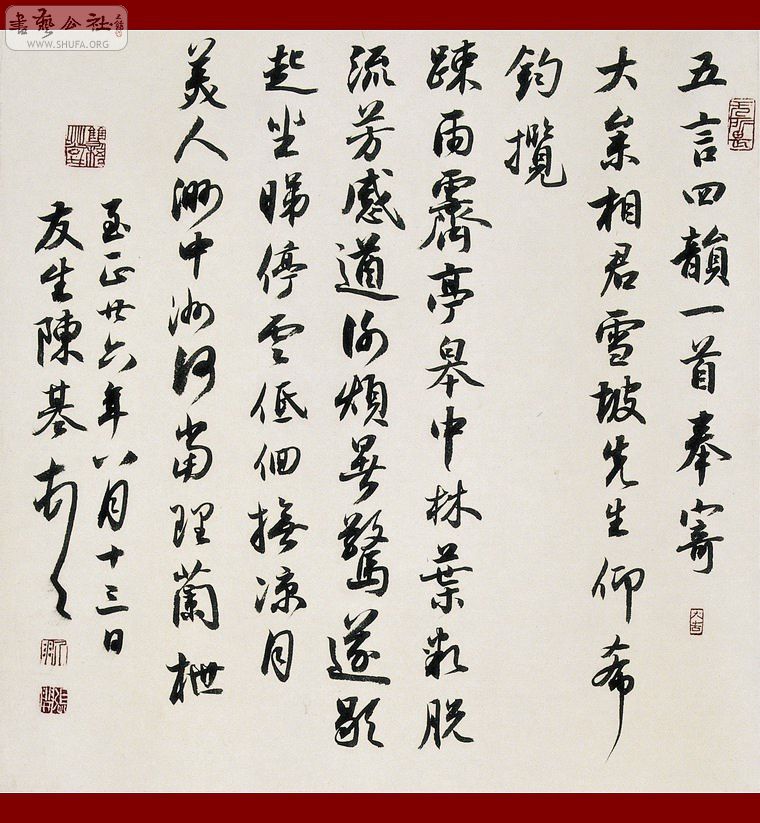 書藝公社
WWW.SHUFA.ORG
五言四韻一首奉寄
大參相君雪坡先生仰希
鈞攬
踈雨霽亭皋中林葉脫
流芳感遒謝煩暑驚遂歇
起坐睇停雲低佪撫涼月
美人渺中洲何當理蘭枻
至正廿六年八月十三日
友生陳基頓首